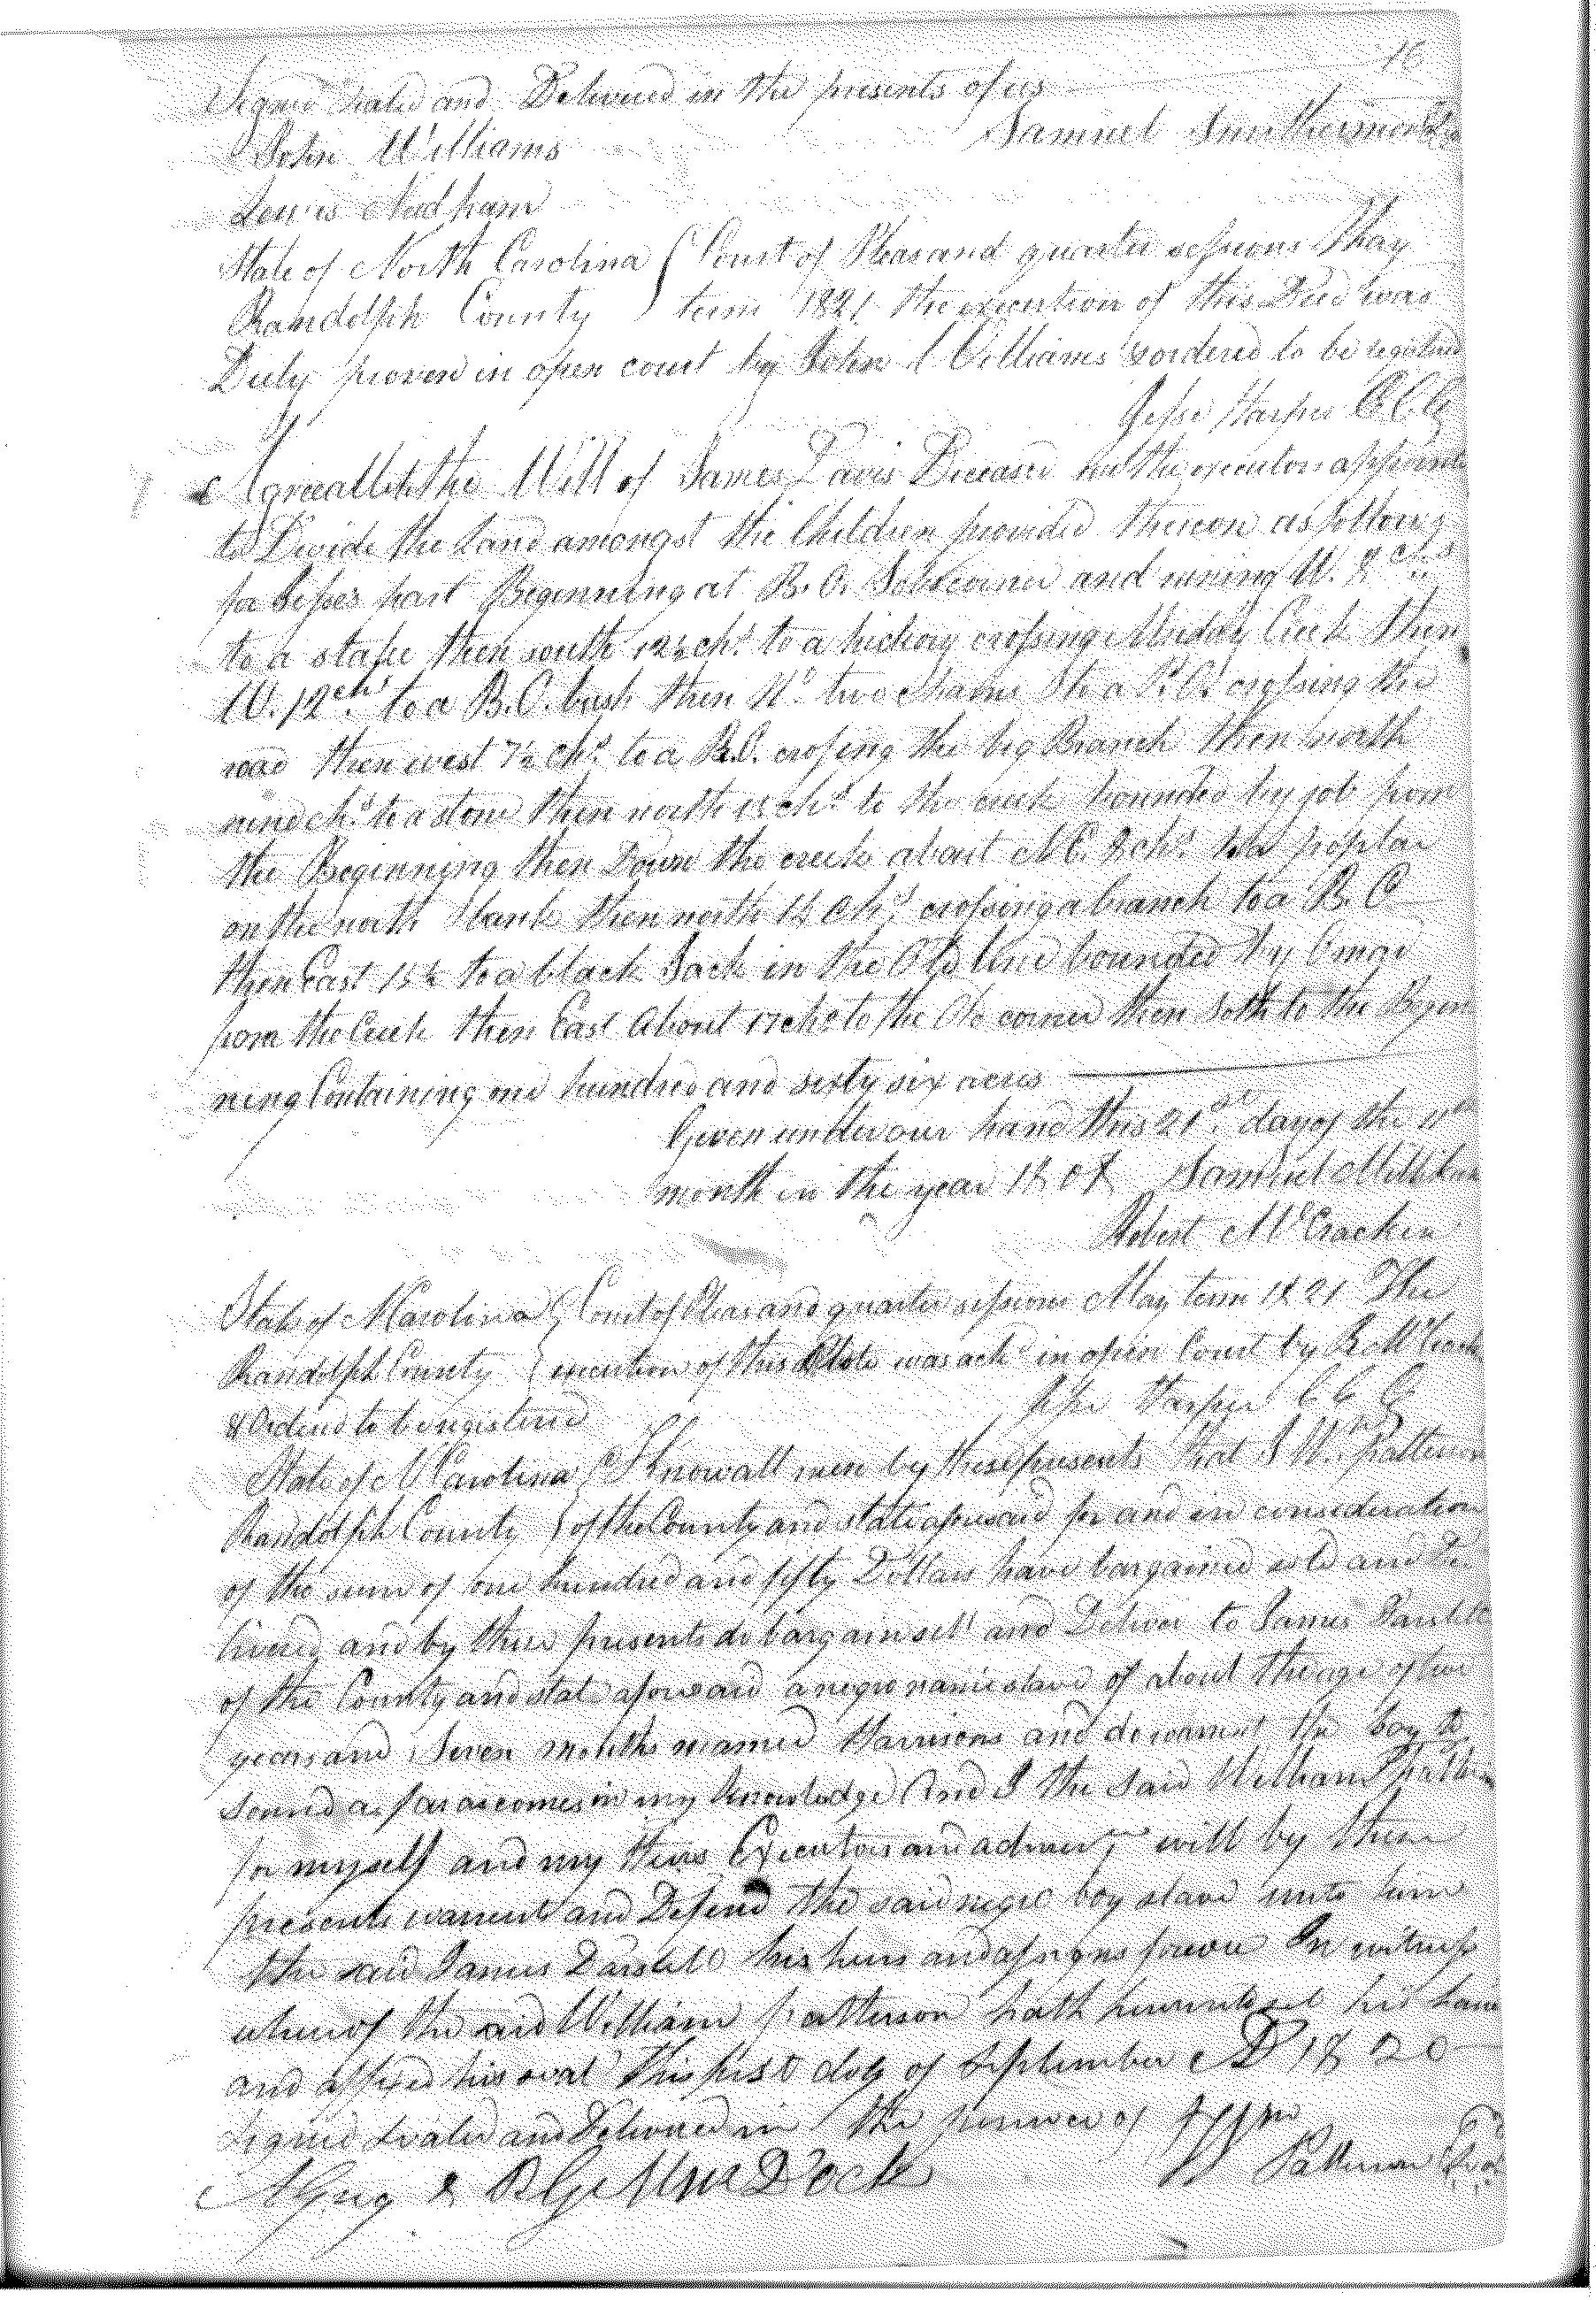 16
Signed Sealed and Delivered in the presents of us
Samuel Smitherman
John Williams
Lewis Needham
State of North Carolina } Court of Pleas and quarter sessions May
Randolph County } term 1821 the execution of this Deed was
Duly proven in open court by John Williams & ordered to be registered
Jesse Harper C.C.C.
Agreeable to the Will of James Davis Deceased the executors appoint
to Devide the Land amongst the Children provided thereon as follows
for part Beginning at B.O. corner and runing W. 8 chs
to a stake then south 12½ chs to a hickory crossing Muddy Creek then
W. 12 chs to a B.O. bush then two chains to a P.O. crossing the
road then west 7½ chs to a B.O. crossing the big Branch then north
nine chs to a stone then north 15 chs to the creek bounded by job from
the Beginning then Down the creek about N E. 8 chs to a poplar
on the north bank then north 14 chs crossing a branch to a B. O
then East 15½ to a black Jack in the Old line bounded by
from the Creek then East About 17 chs to the Old corner then Soth to the Begin
ning Containing one hundred and sixty six acres
Given under our hand this 21st day of the 11th
month in the year 1808 Samuel Millikan
Robert McCracken
State of N Carolina } Court of Pleas and quarter sessions May term 1821 The
Randolph County } execution of this was ackd in open Court by R McCrack
& Ordered to be registered Jesse Harper C C C
State of N Carolina } Know all men by these presents that I Wm Patterson
Randolph County } of the County and state aforesaid for and in consideration
of the sum of one hundred and fifty Dollars have bargained sold and De
livered and by these presents do bargain sell and Deliver to James
of the County and state aforesaid a negro slave of about the age of two
years and Seven months named Harrison and do warrent the boy to
sound as far as comes in my knowledge And I the said William Patterson
for myself and my Heirs Executors and will by these
presents warrent and Defend the said negro boy slave unto him
the said James his heirs and assigns forever In witness
whereof the said William patterson hath hereunto set his hand
and affixed his seal this first day of September AD 1820
Signed Sealed and Delivered in the presence of
Wm Patterson